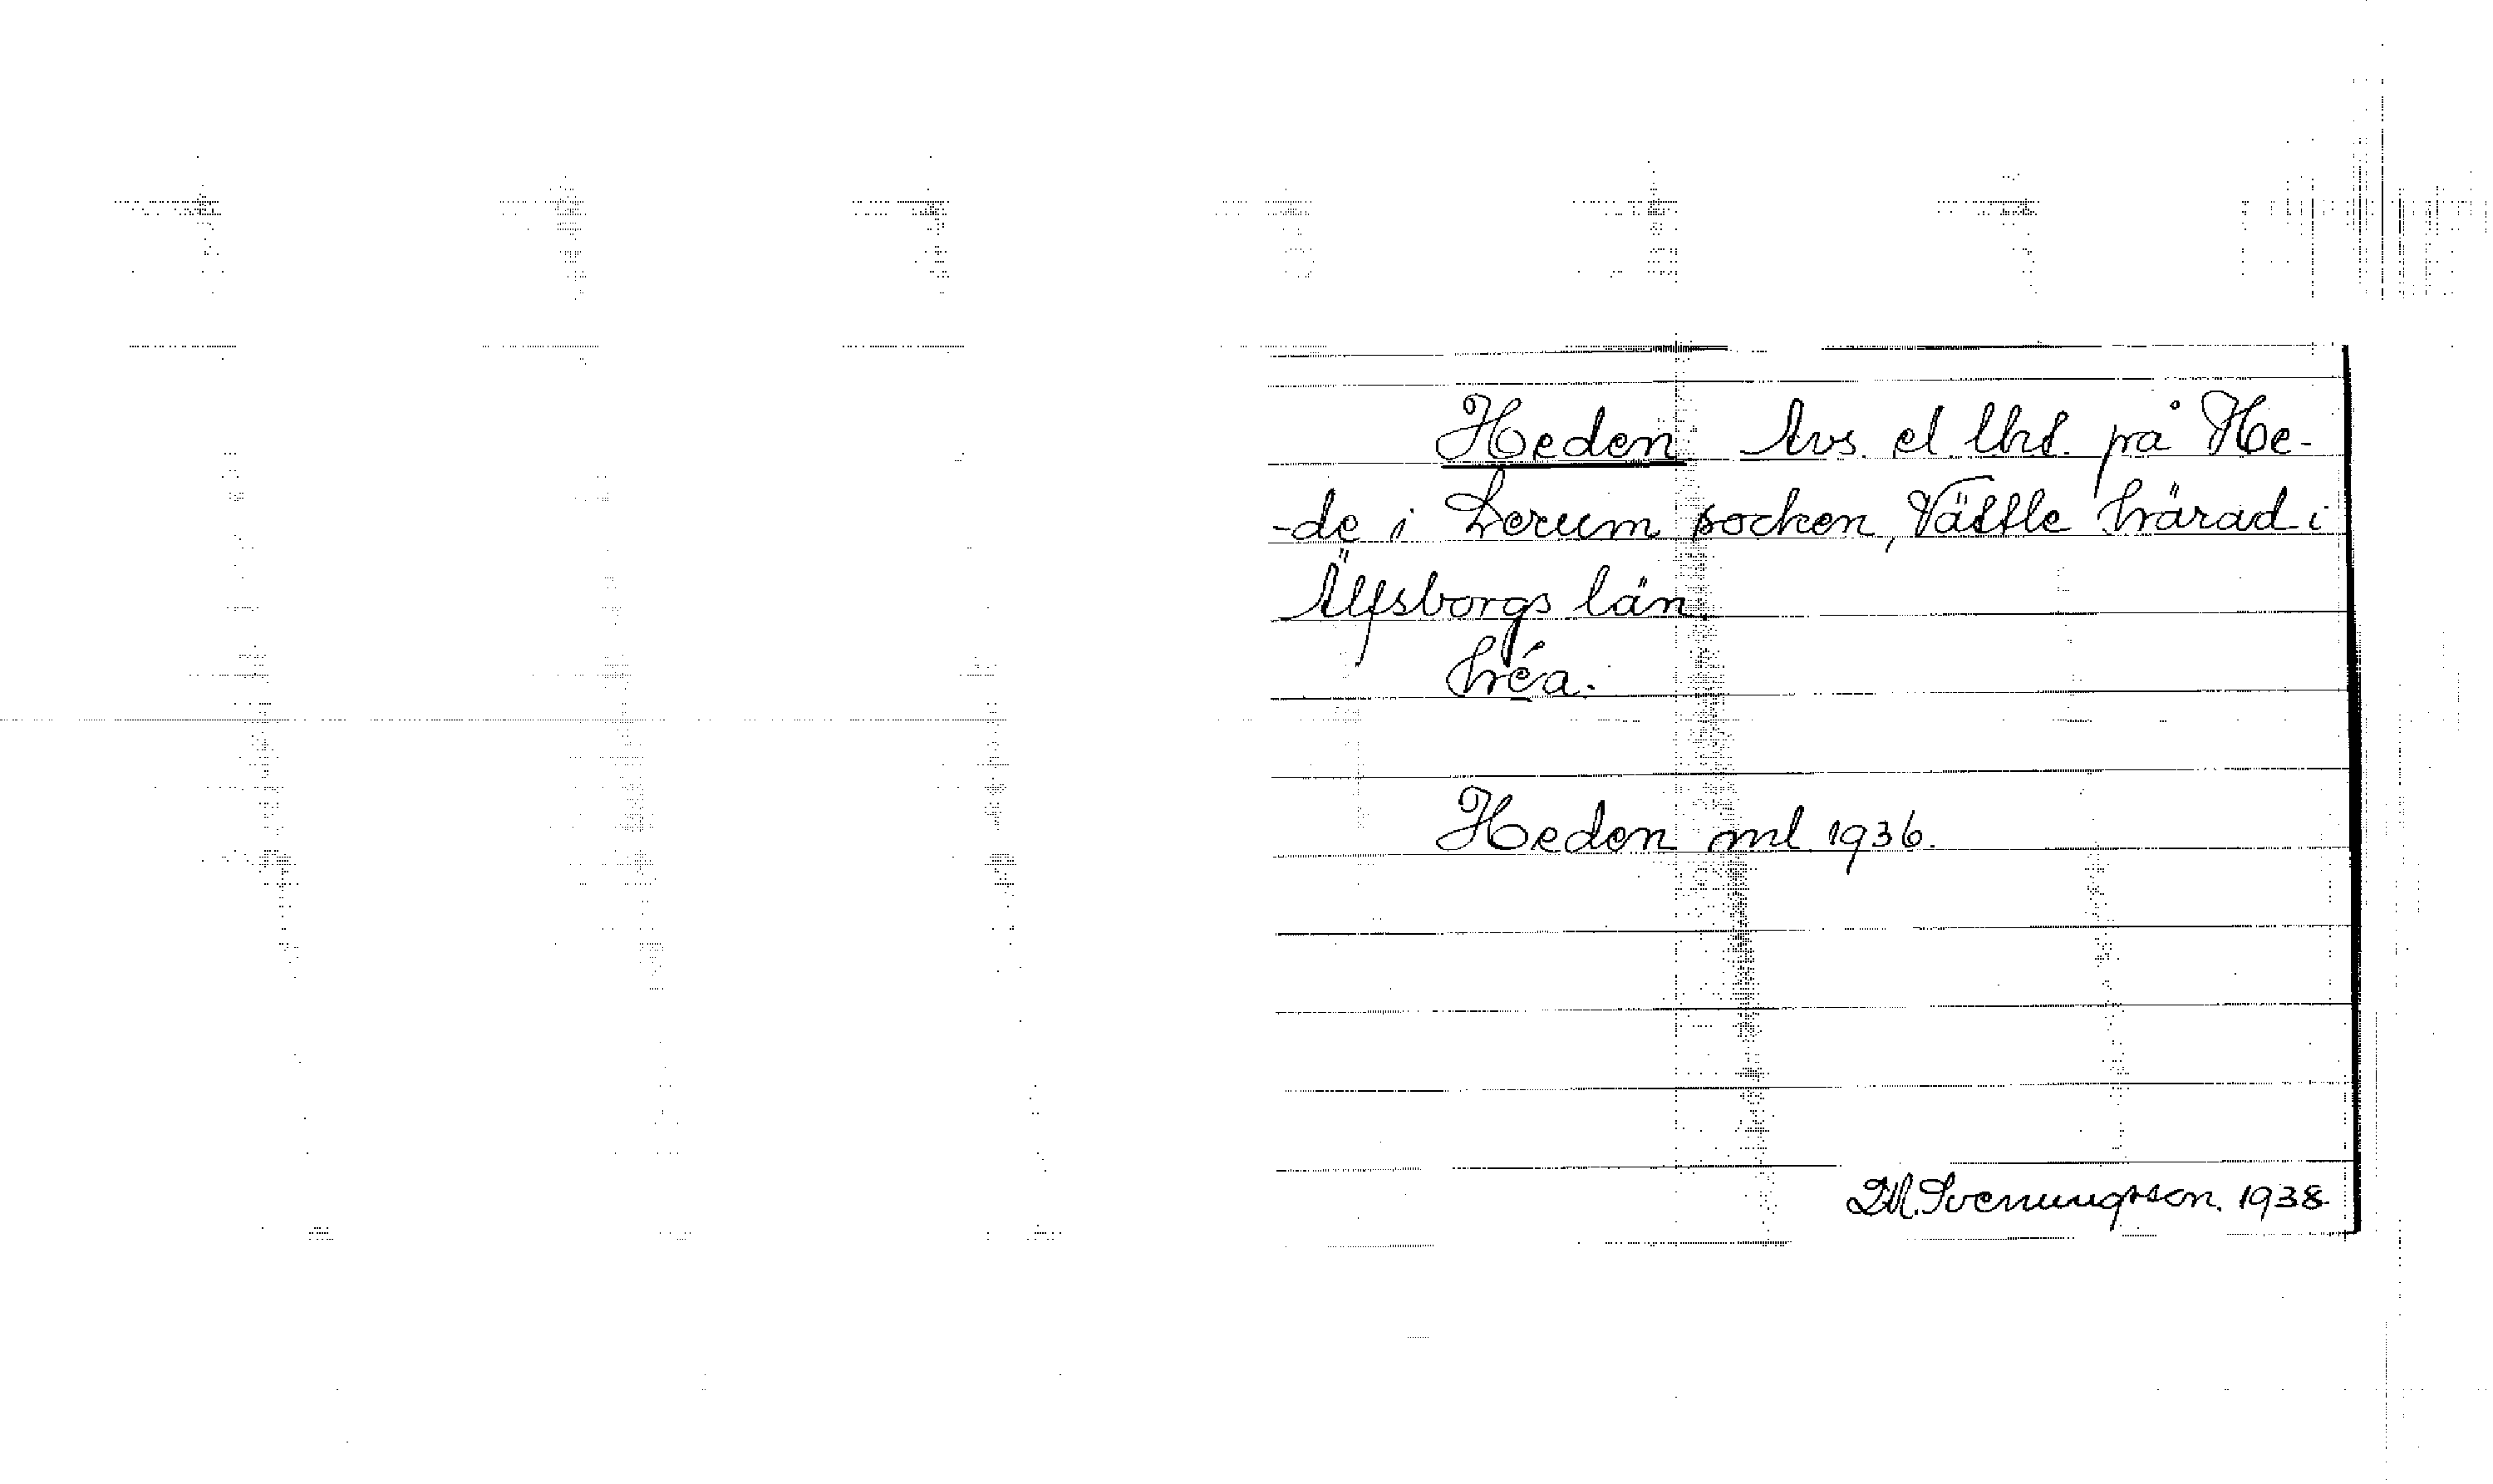 Heden Avs. el. lht. på He-
-de i Lerum socken, Vättle härad i
Älfsborgs län.
héa.
Heden ml 1936.
Svenungsson. 1938